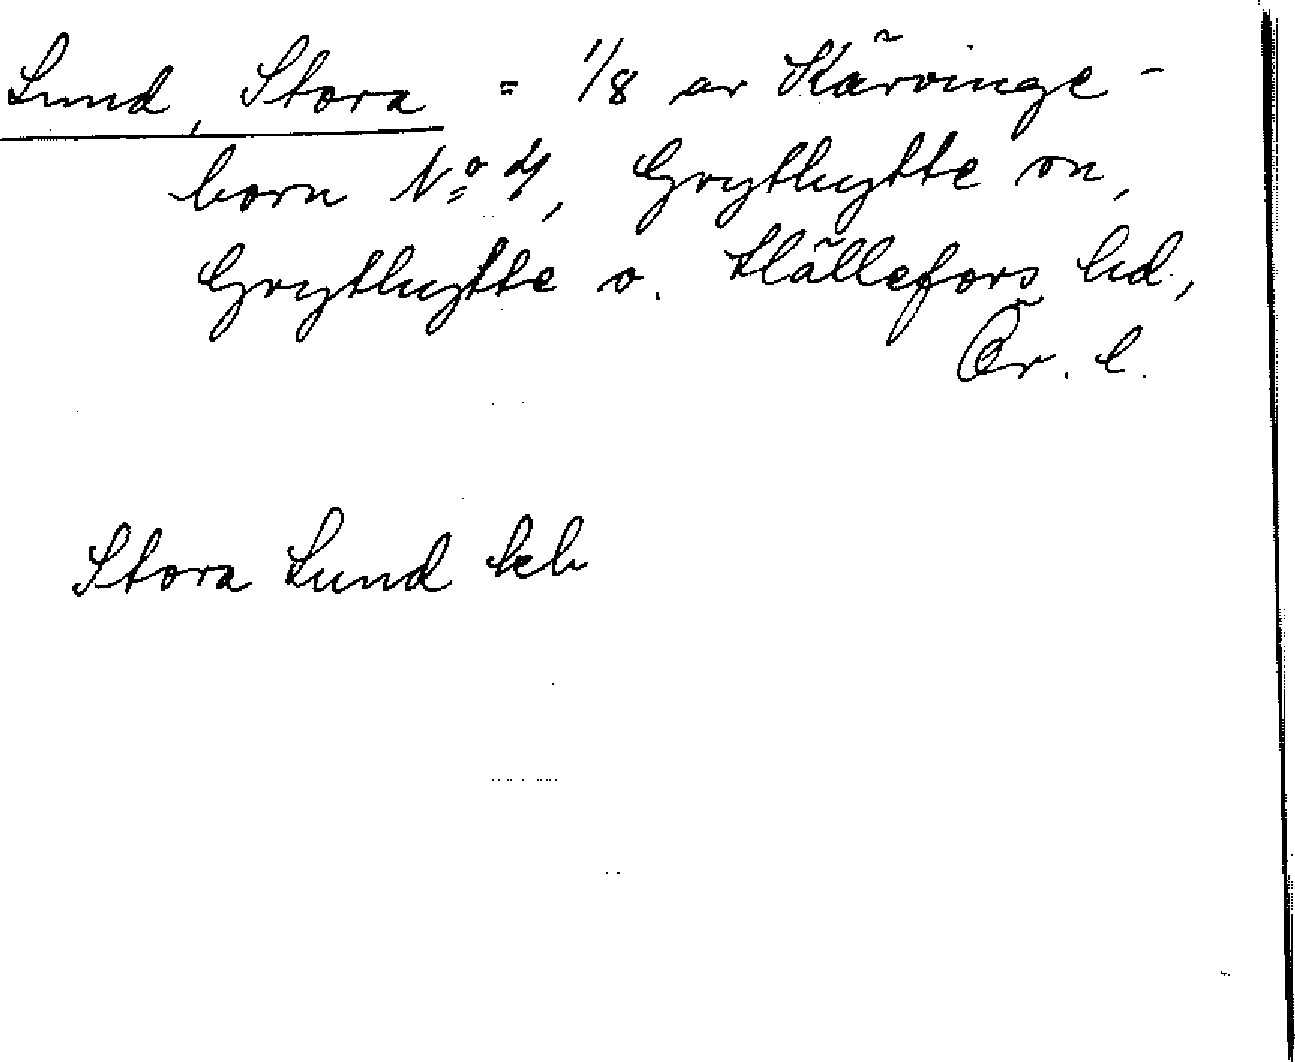 Lund, Stora = 1/8 av Kärvinge-
born No 4, Grythytte sn,
Grythytte o. Hällefors hd,
Ör. l.
Stora Lund kch